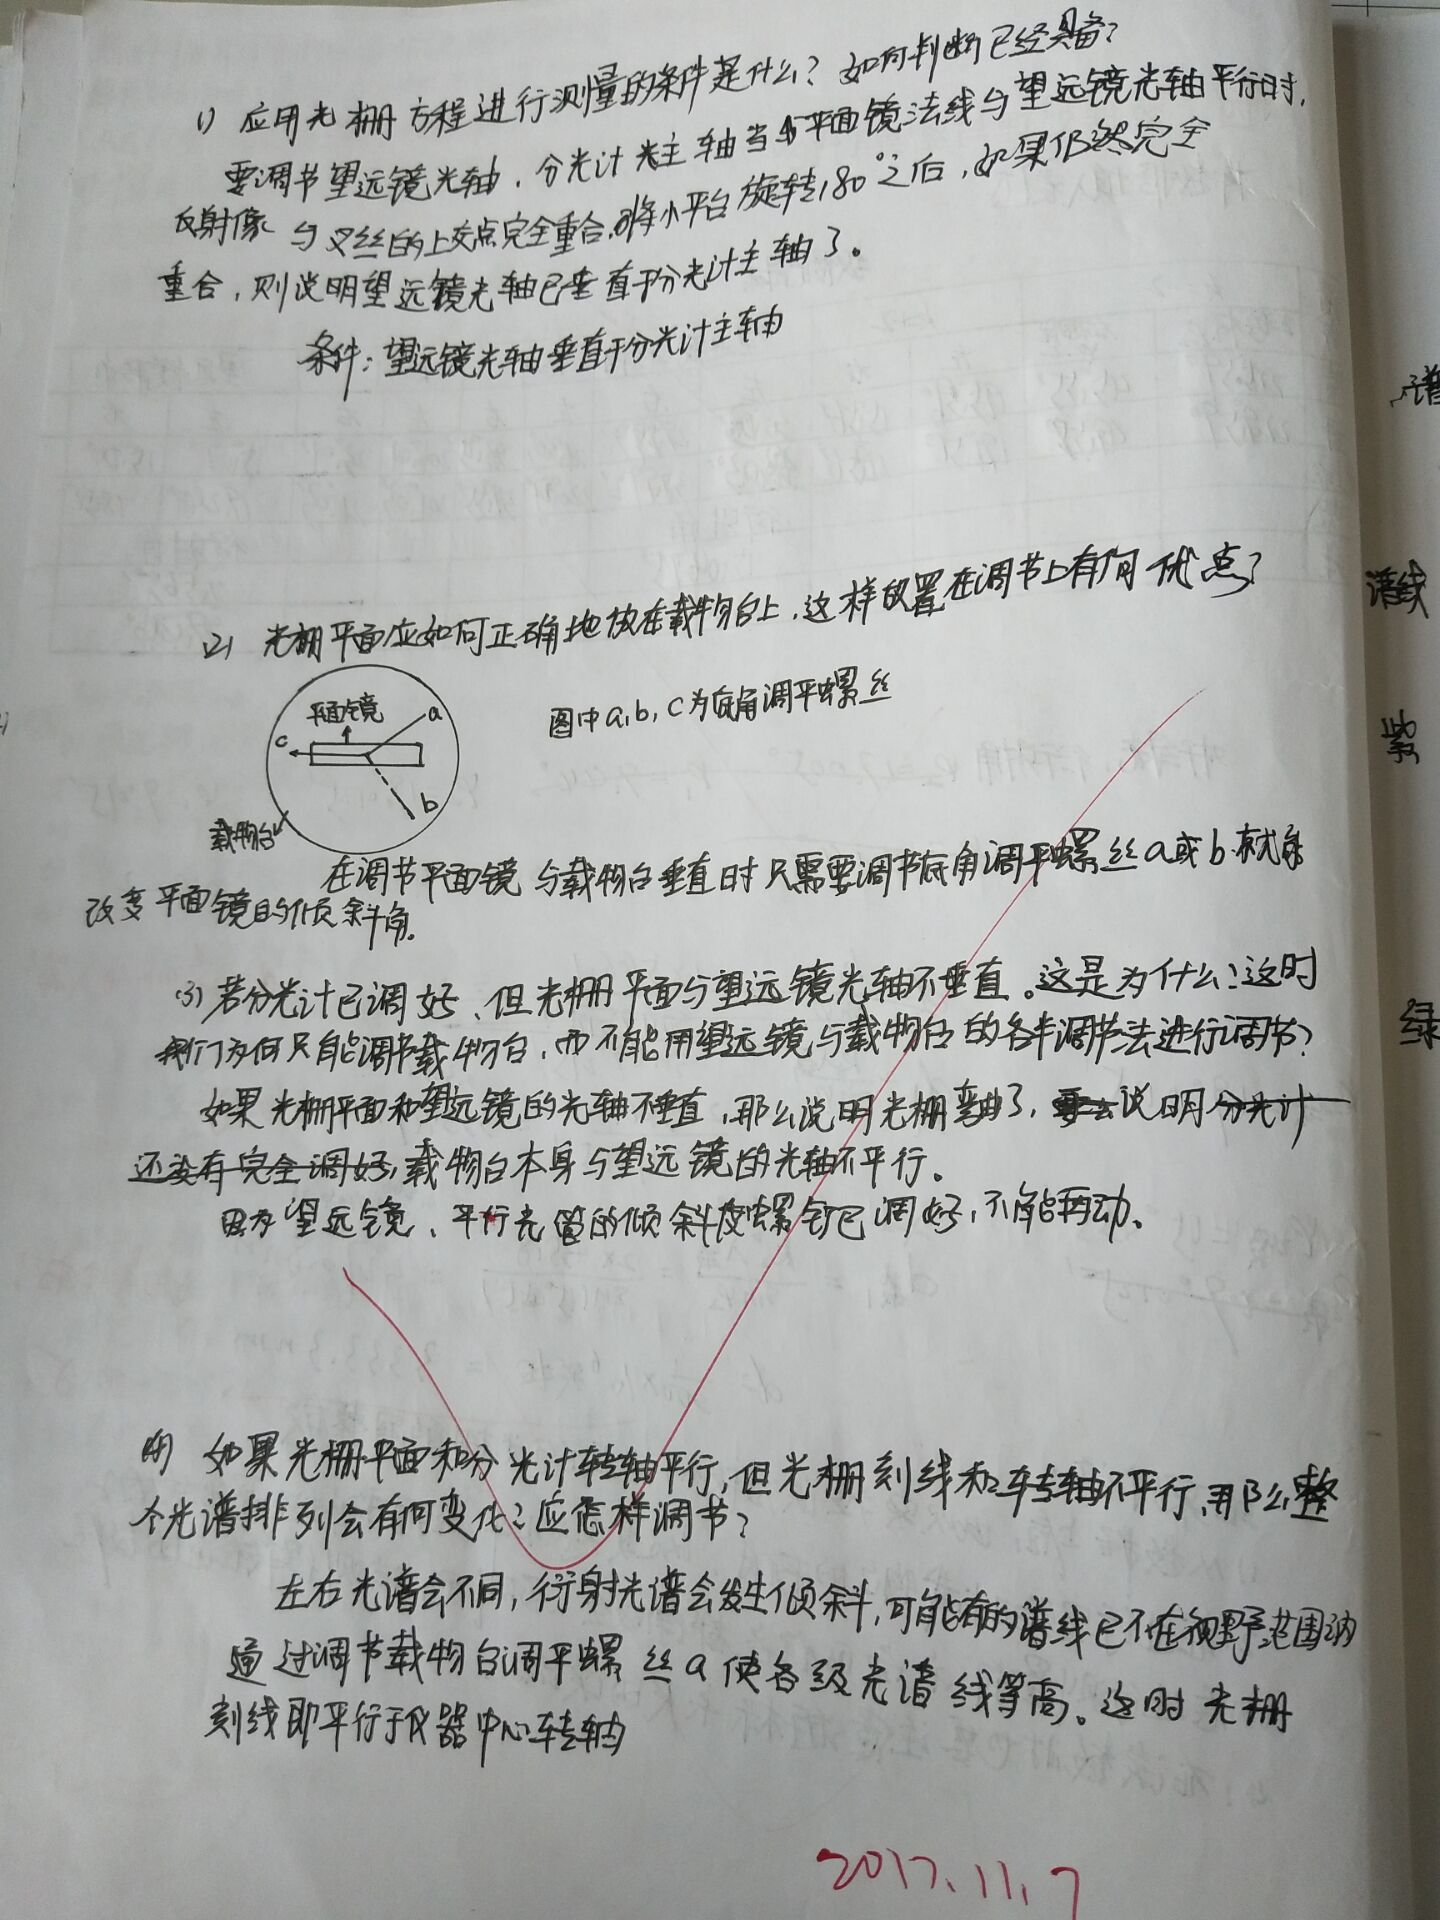 1) 应用光栅方程进行测量的条件是什么？如何判断已经具备？
要调节望远镜光轴，分光计主轴当平面镜法线与望远镜光轴平行时，
反射像与叉丝的上交点完全重合，将小平台旋转180°之后，如果仍然完全
重合，则说明望远镜光轴已垂直于分光计主轴了。
条件：望远镜光轴垂直于分光计主轴
(2) 光栅平面应如何正确地放在载物台上，这样放置在调节上有何优点？
平面镜
a
c
b
载物台
图中a,b,c为底角调平螺丝
在调节平面镜与载物台垂直时只需要调节底角调平螺丝a或b就能
改变平面镜的倾斜角。
(3) 若分光计已调好、但光栅平面与望远镜光轴不垂直。这是为什么？这时
我们为何只能调节载物台，而不能用望远镜与载物台的各半调节法进行调节？
如果光栅平面和望远镜的光轴不垂直，那么说明光栅弯曲了，说明分光计
还没有完全调好，载物台本身与望远镜的光轴不平行。
因为望远镜、平行光管的倾斜度螺钉已调好，不能再动。
(4) 如果光栅平面和分光计转轴平行，但光栅刻线和转轴不平行，那么整
个光谱排列会有何变化？应怎样调节？
左右光谱会不同，衍射光谱会发生倾斜，可能有的谱线已不在视野范围内
通过调节载物台调平螺丝a使各级光谱线等高。这时光栅
刻线即平行于仪器中心转轴
2017.11.7
谱
谱线
紫
绿